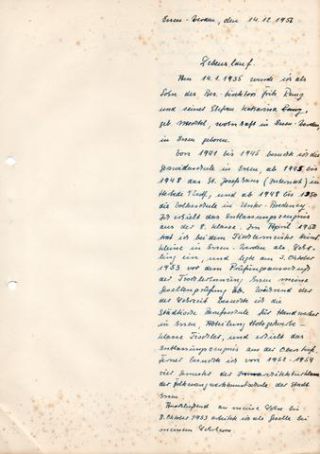 Essen-Werden, den 14.12.1956
Lebenslauf.
Am 14.1.1936 wurde ich als
Sohn des Fritz
und seiner Ehefrau Katharina
geb. wohnhaft in Essen-Werden,
in Essen geboren.
Von 1941 bis 1945 besuchte ich die
in Essen, ab 1945 bis
1948 das St. Josefshaus (Internat) in
und ab 1948 bis 1950
die Volksschule in Essen-Bredeney.
Ich erhielt das Entlassungszeugnis
aus der 8. Klasse. Im April 1950
trat ich bei dem Tischlermeister
in Essen-Werden als Lehr-
ling ein, und legte am 3. Oktober
1953 vor dem Prüfungsausschuß
der Tischlerinnung Essen meine
Gesellenprüfung ab. Während der
der Lehrzeit besuchte ich die
Städtische Berufsschule für Handwerker
in Essen, Abteilung Holzgewerbe-
klasse Tischler, und erhielt das
Entlassungszeugnis aus der Oberstufe.
Ferner besuchte ich von 1952-1954
vier Semester der
der Folkwangwerkkunstschule der Stadt
Essen.
Anschließend an meine Lehre bis
3. Oktober 1953 arbeitete ich als Geselle bei
meinem Lehrherrn.